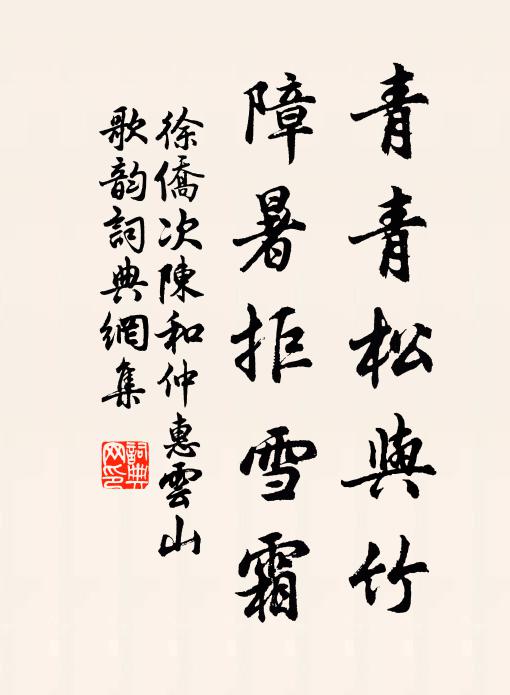 青青松與竹
障暑拒雪霜
徐僑次陳和仲惠雲山
歌韵詞典網集
詞典網印